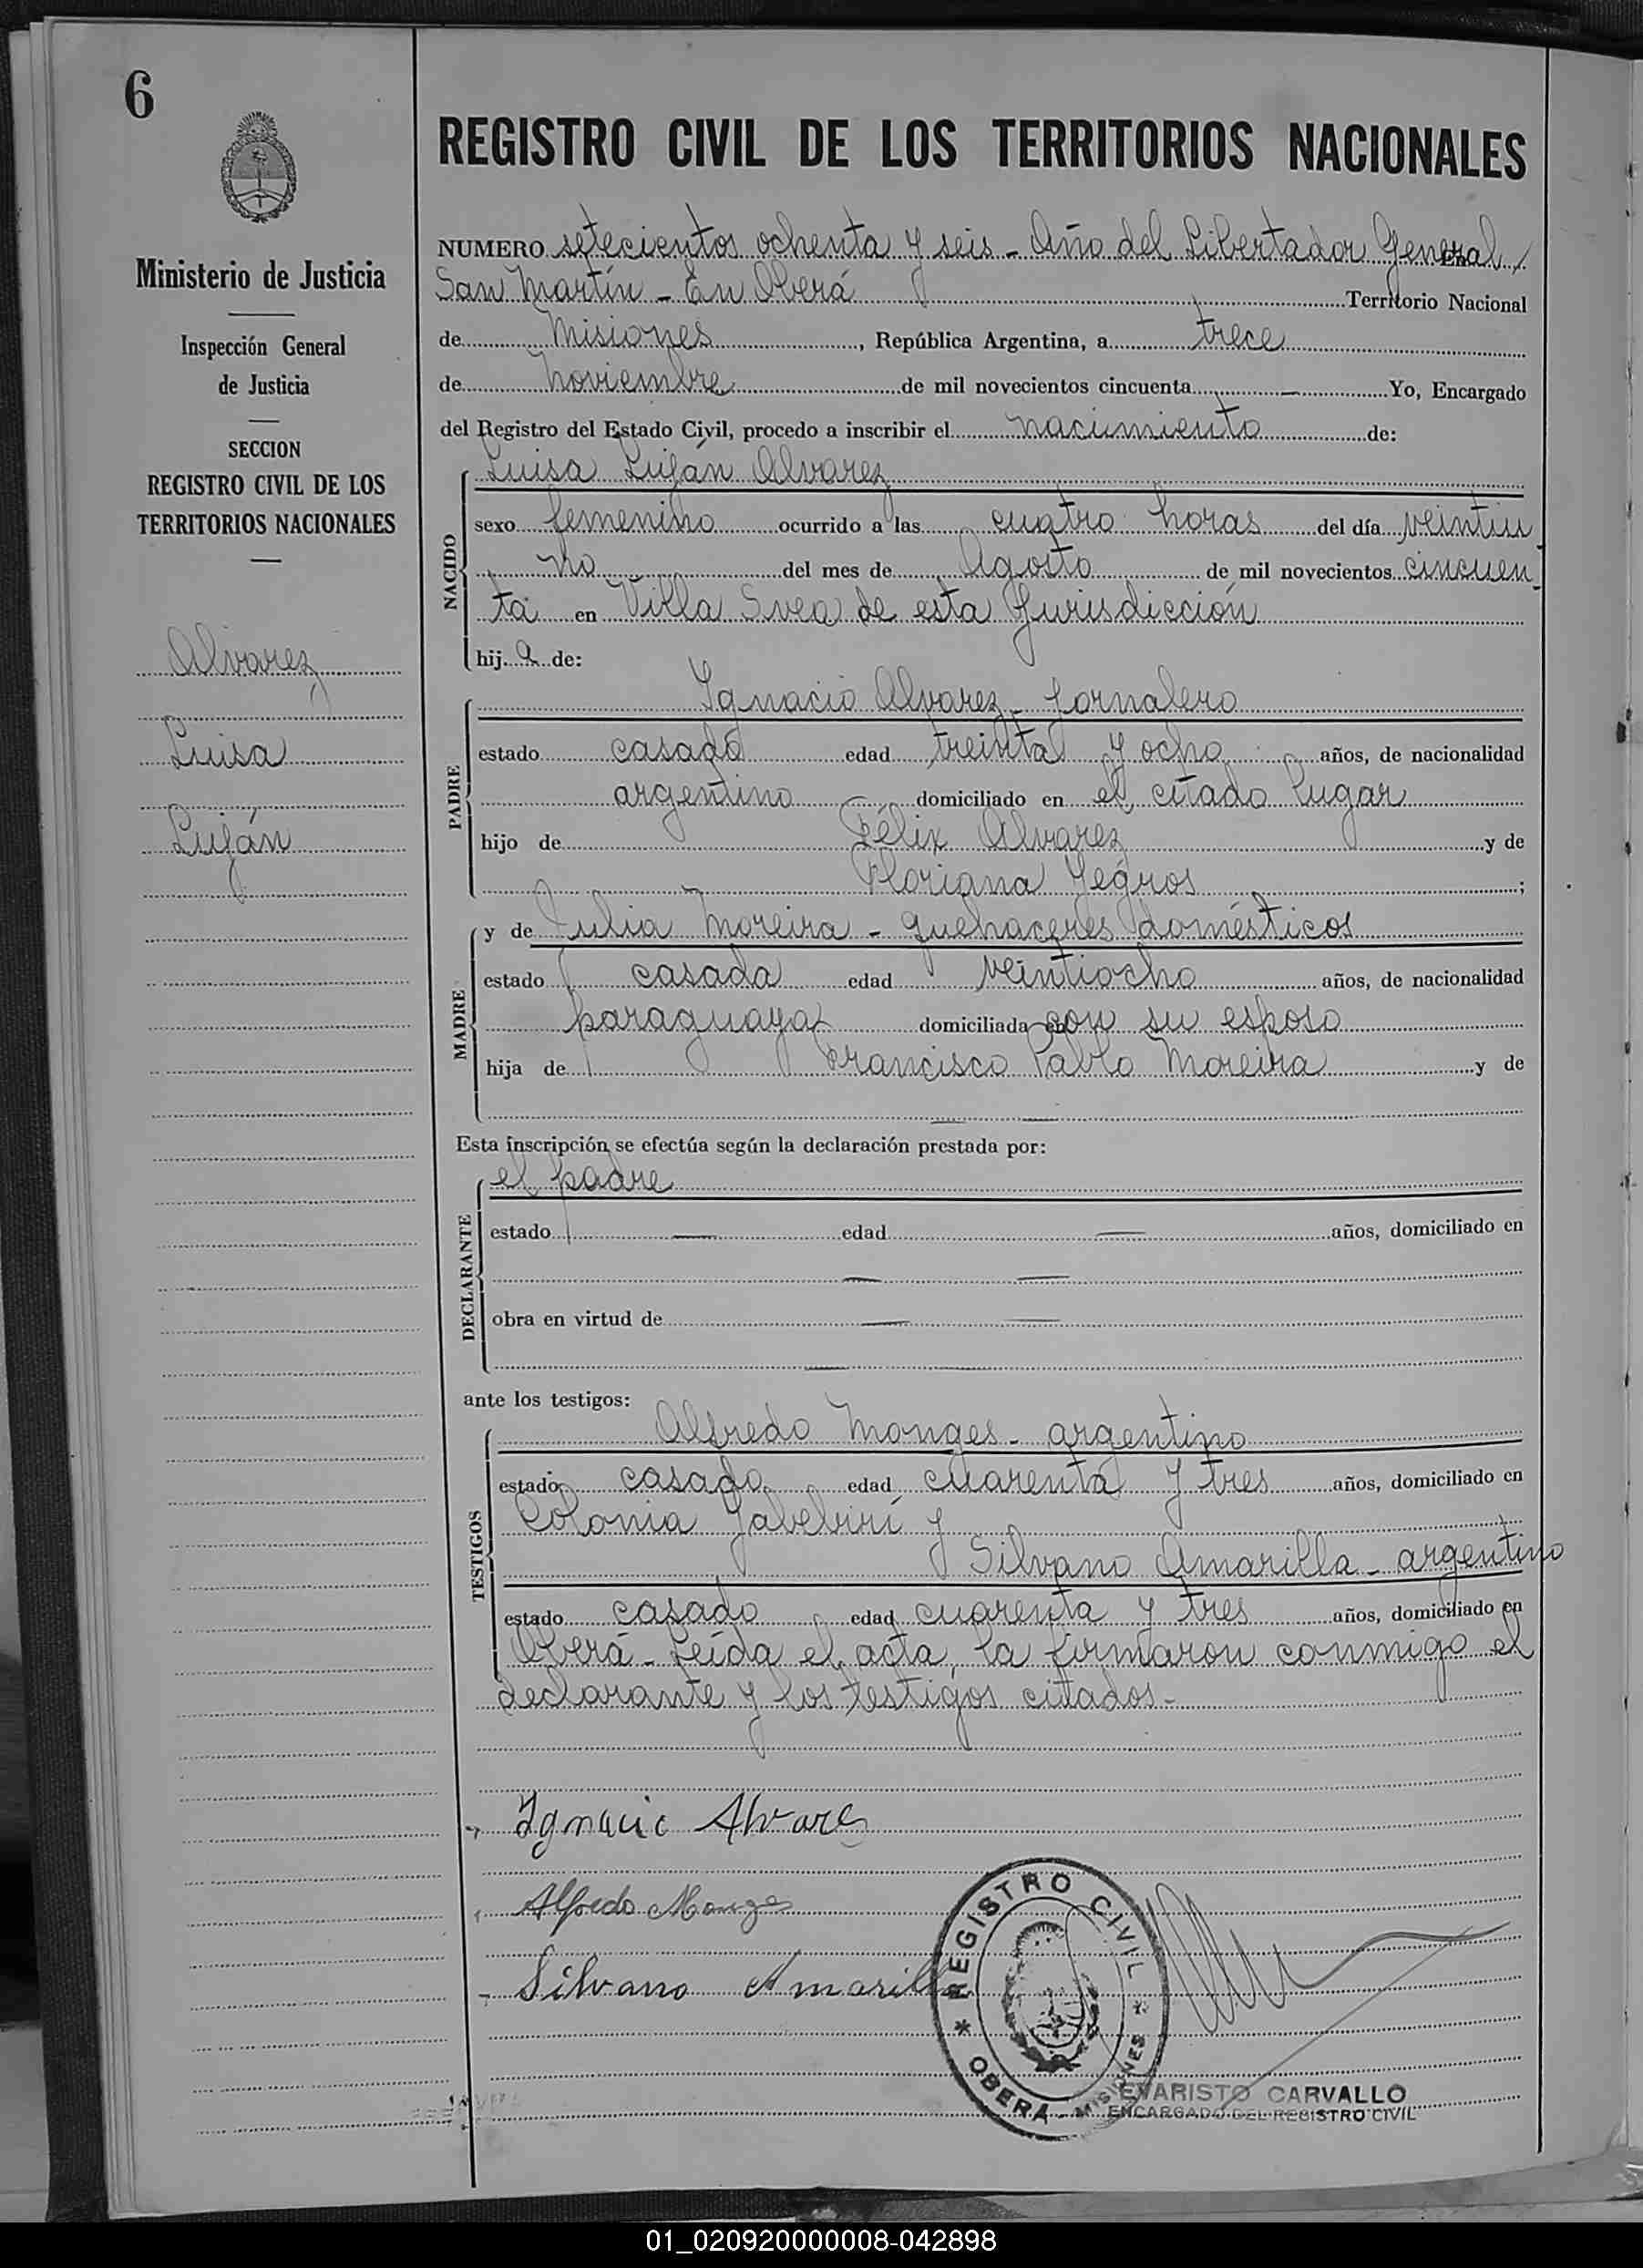 6
REGISTRO CIVIL DE LOS TERRITORIOS NACIONALES
Ministerio de Justicia
Inspección General
de Justicia
SECCION
REGISTRO CIVIL DE LOS
TERRITORIOS NACIONALES
Alvarez
Luisa
Luján
NUMERO setecientos ochenta y seis - Año del Libertador General
San Martín - En Oberá Territorio Nacional
de Misiones, República Argentina, a trece
de Noviembre de mil novecientos cincuenta — Yo, Encargado
del Registro del Estado Civil, procedo a inscribir el nacimiento de:
NACIDO
Luisa Luján Alvarez
sexo femenino ocurrido a las cuatro horas del día veintiu
no del mes de Agosto de mil novecientos cincuen
ta en Villa Svea de esta Jurisdicción
hij a de:
PADRE
Ignacio Alvarez - Jornalero
estado casado edad treinta y ocho años, de nacionalidad
argentino domiciliado en el citado lugar
hijo de Félix Alvarez y de
Floriana Yegros ;
MADRE
y de Julia Moreira - quehaceres domésticos
estado casada edad veintiocho años, de nacionalidad
paraguaya domiciliada en con su esposo
hija de Francisco Pablo Moreira y de
Esta inscripción se efectúa según la declaración prestada por:
DECLARANTE
el padre
estado — edad — años, domiciliado en
— —
obra en virtud de — —
ante los testigos:
TESTIGOS
Alfredo Monges - argentino
estado casado edad cuarenta y tres años, domiciliado en
Colonia Yabebirí y
Silvano Amarilla - argentino
estado casado edad cuarenta y tres años, domiciliado en
Oberá - Leída el acta, la firmaron conmigo el
declarante y los testigos citados -
Ignacio Alvares
Alfredo Monges
Silvano Amarilla
REGISTRO CIVIL
* OBERA - MISIONES *
EVARISTO CARVALLO
ENCARGADO DEL REGISTRO CIVIL
01_020920000008-042898